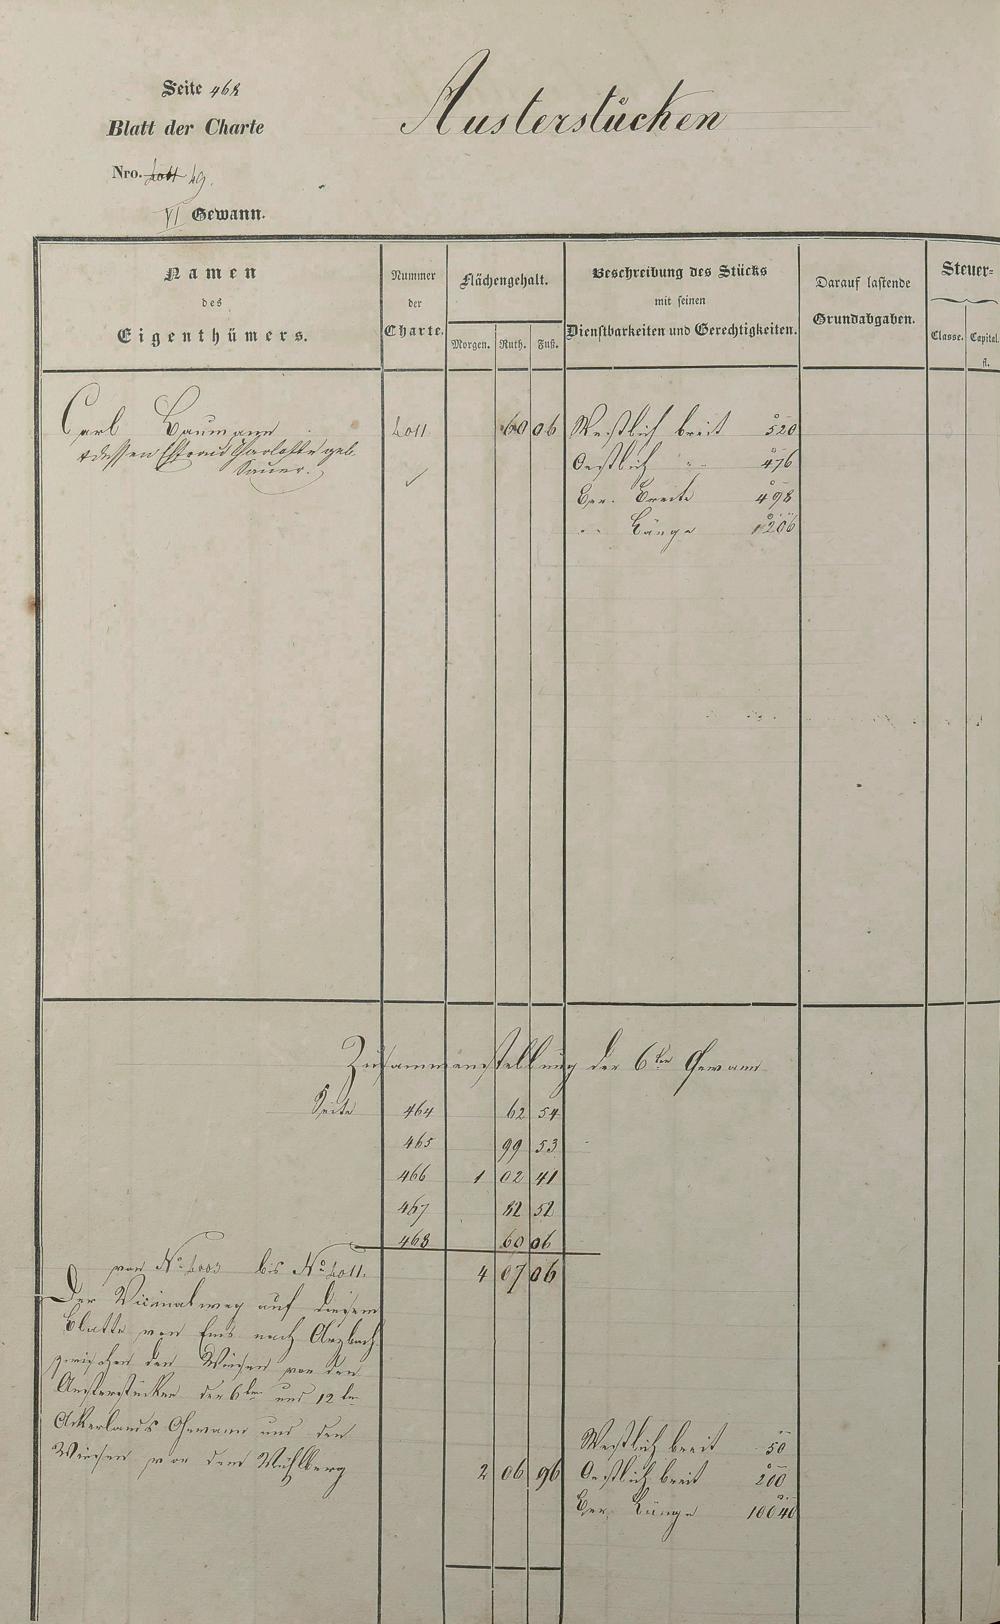 Seite 468
Austerstücken
Blatt der Charte
Nro. 49.
VI Gewann.
Namen des Eigenthümers.
Nummer der Charte.
Flächengehalt.
Morgen. Ruth. Fuß.
Beschreibung des Stücks mit seinen Dienstbarkeiten und Gerechtigkeiten.
Darauf lastende Grundabgaben.
Steuer=
Classe. Capital.
fl.
Carl Baumann 4011 60 06 Westlich breit 520
& dessen Ehefrau Charlotte geb. Oestlich " 476
Sauer. Ber. Breite 498
" Länge 1206
Zusammenstellung der 6ten Gewann
Seite 464 62 54
465 99 53
466 1 02 41
467 82 52
468 60 06
von No 4003 bis No 4011. 4 07 06
Der Vicinalweg auf diesem
Blatte von Ems nach Arzbach
zwischen den Wiesen von den
Austerstücken der 6ten und 12ten
Ackerlands Gewann und den
Wiesen von dem Mühlberg 2 06 96
Westlich breit 50
Oestlich breit 200
Ber. Länge 10040